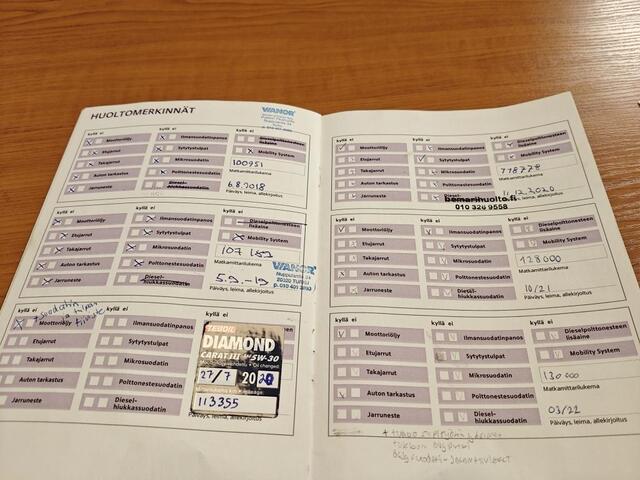 HUOLTOMERKINNÄT
VIANOR
kyllä ei kyllä ei kyllä ei
Moottoriöljy Ilmansuodatinpanos
Etujarrut Sytytystulpat Mobility System
Takajarrut Mikrosuodatin 100951
Auton tarkastus Polttonestesuodatin Matkamittarilukema
Jarruneste 6.8.2018
Päiväys, leima, allekirjoitus
kyllä ei kyllä ei kyllä ei
Moottoriöljy Ilmansuodatinpanos Dieselpolttonesteen lisäaine
Etujarrut Sytytystulpat Mobility System
Takajarrut Mikrosuodatin
Auton tarkastus Polttonestesuodatin Matkamittarilukema
Jarruneste Diesel-hiukkassuodatin 5.9.-19
VIANOR
20320 Turku
Päiväys, leima, allekirjoitus
kyllä ei kyllä ei
Moottoriöljy Ilmansuodatinpanos
Etujarrut Sytytystulpat
Takajarrut Mikrosuodatin
Auton tarkastus Polttonestesuodatin
Jarruneste Diesel-hiukkassuodatin
TEBOIL
DIAMOND
CARAT III 5W-30
Oil changed
27/7 2020
113355
kyllä ei kyllä ei kyllä ei
Moottoriöljy Ilmansuodatinpanos Dieselpolttonesteen
lisäaine
Etujarrut Sytytystulpat Mobility System
Takajarrut Mikrosuodatin
Auton tarkastus Polttonestesuodatin Matkamittarilukema
Jarruneste 11.12.2020
Päiväys, leima, allekirjoitus
bemarihuolto.fi
010 326 9558
kyllä ei kyllä ei kyllä ei
Moottoriöljy Ilmansuodatinpanos Dieselpolttonesteen
lisäaine
Etujarrut Sytytystulpat Mobility System
Takajarrut Mikrosuodatin 128000
Auton tarkastus Polttonestesuodatin Matkamittarilukema
Jarruneste Diesel-hiukkassuodatin 10/21
Päiväys, leima, allekirjoitus
kyllä ei kyllä ei kyllä ei
Moottoriöljy Ilmansuodatinpanos Dieselpolttonesteen
lisäaine
Etujarrut Sytytystulpat Mobility System
Takajarrut Mikrosuodatin 130 000
Auton tarkastus Polttonestesuodatin Matkamittarilukema
Jarruneste Diesel-hiukkassuodatin 03/22
Päiväys, leima, allekirjoitus